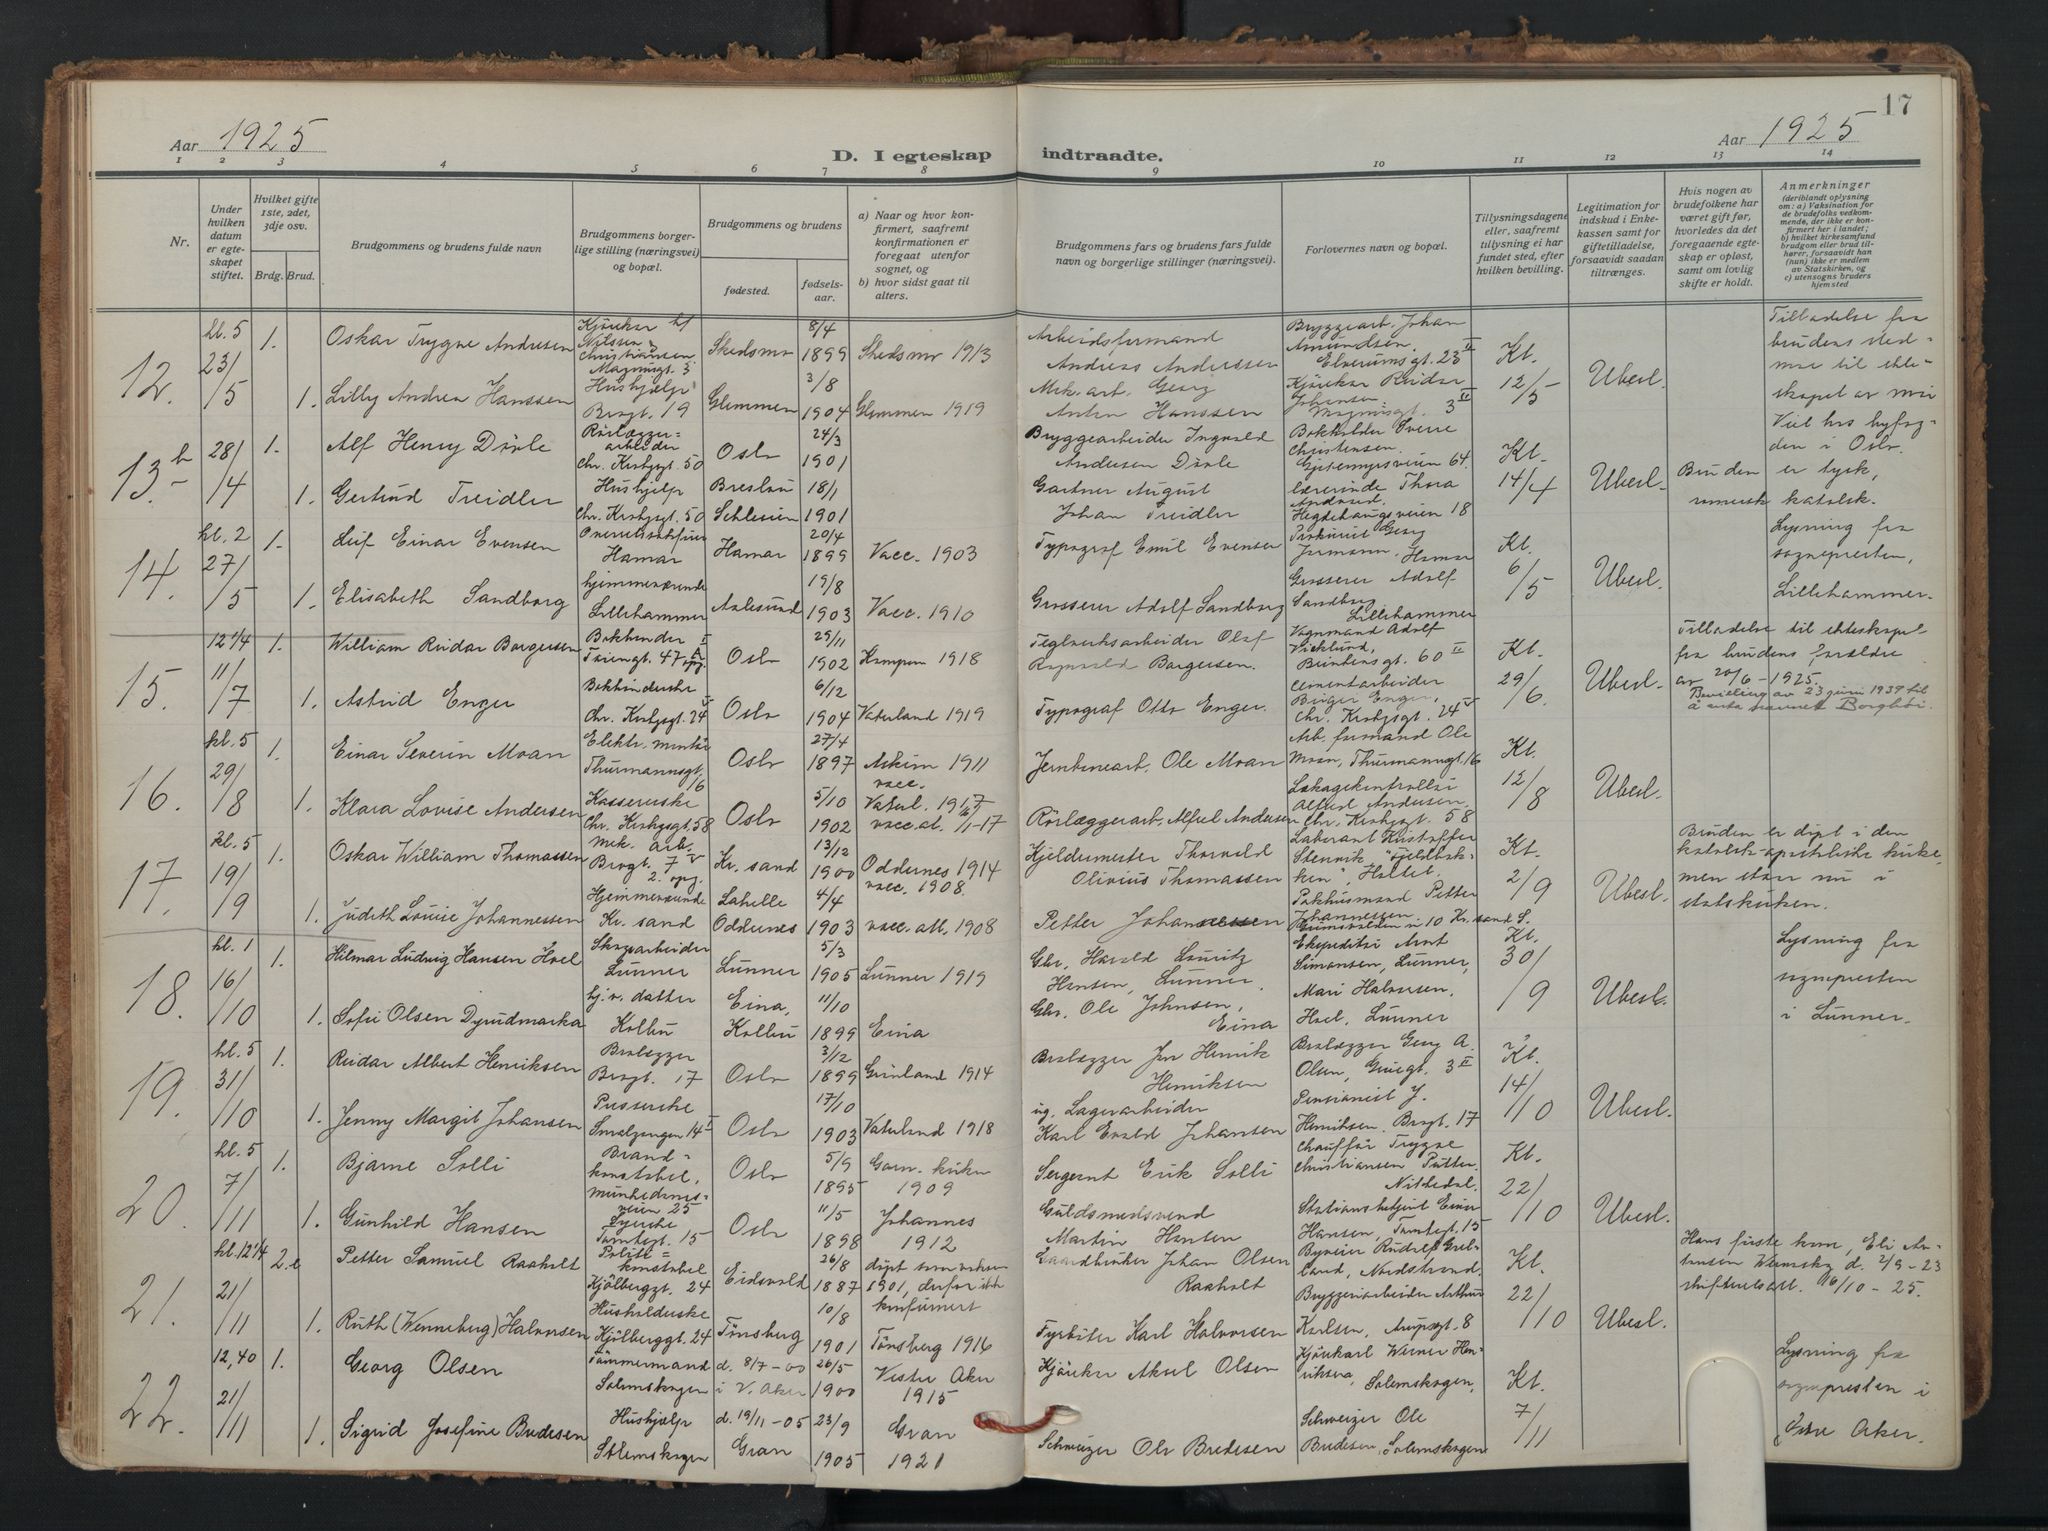 17
Aar 1925
Aar 1925
D. I egteskap indtraadte.
1 2 3 4 5 6 7 8 9 10 11 12 13 14
Nr.
Under hvilken datum er egteskapet stiftet.
Hvilket gifte 1ste, 2det, 3dje osv.
Brdg. Brud.
Brudgommens og brudens fulde navn
Brudgommens borgerlige stilling (næringsvei) og bopæl.
Brudgommens og brudens
fødested.
fødselsaar.
a) Naar og hvor konfirmert, saafremt konfirmationen er foregaat utenfor sognet, og
b) hvor sidst gaat til alters.
Brudgommens fars og brudens fars fulde navn og borgerlige stillinger (næringsvei).
Forlovernes navn og bopæl.
Tillysningsdagene eller, saafremt tillysning ei har fundet sted, efter hvilken bevilling.
Legitimation for indskud i Enkekassen samt for giftetilladelse, forsaavidt saadan tiltrænges.
Hvis nogen av brudefolkene har været gift før, hvorledes da det foregaaende egteskap er opløst, samt om lovlig skifte er holdt.
Anmerkninger
(deriblandt oplysning om: a) Vaksination for de brudefolks vedkommende, der ikke er konfirmert her i landet; b) hvilket kirkesamfund brudgom eller brud tilhører, forsaavidt han (hun) ikke er medlem av Statskirken, og c) utensogns bruders hjemsted
12. kl. 5 23/5
1. Oskar Trygve Andresen
Kjörekar
Nilssen & Christiansen
Skedsmo 8/4 1899 Skedsmo 1913
Arbeidsformand Andreas Anderssen
Bryggearb. Johan Amundsen, Elverumsgt. 23 II
Kl. 12/5 Ubesl.
1. Lilly Andrea Hanssen
Hushjelp
Brogt. 19
Glemmen 3/8 1904 Glemmen 1919
Mek. arb. Georg Anton Hanssen
Kjörekar Reidar Johansen, Magnusgt. 3 II
Tilladelse fra
13. b 28/4
1. Alf Henry Dörle
Rörlæggerarbeider
Chr. Krohgsgt. 50
Oslo 24/3 1901
Bryggearbeider Ingvald Andersen Dörle
Bokholder Sverre Christensen
64.
Kl. 14/4 Ubesl.
1. Gertrud Treidler
Hushjelp
Chr. Krohgsgt. 50
Breslau Schlesien 18/1 1901
Gartner August Johan Treidler
Lærerinde Thora
Hegdehaugsveien 18
Bruden er tysk, romersk katolsk.
14. kl. 2 27/5
1. Leif Einar Evensen
Hamar
Hamar 20/4 1899 Vacc. 1903
Typograf Emil Evensen
Georg Jormann, Hamar
Kl. 6/5 Ubesl.
1. Elisabeth Sandborg
hjemmeværende
Lillehammer
Aalesund 19/8 1903 Vacc. 1910
Grosserer Adolf Sandborg
Grosserer Adolf Sandborg, Lillehammer
Lysning fra sognepresten, Lillehammer.
15. 12 1/4 11/7
1. William Reidar Borgersen
Bokbinder
Oslo 29/11 1902 Kampen 1918
Teglverksarbeider Olaf Ragnvald Borgersen.
Vognmand Adolf Vicklund, 60 II
Kl. 29/6. Ubesl.
1. Astrid Enger
Bokbinderske
Chr. Krohgsgt. 24 V
Oslo 6/12 1904 Vaterland 1919
Typograf Otto Enger.
Cementarbeider Birger Enger, Chr. Krohgsgt. 24 V
Tilladelse til ekteskapet fra brudens forældre av 20/6 - 1925.
Bevilling av 23 juni 1937 til å anta navnet Borghöi.
16. kl. 5 29/8
1. Einar Severin Moan
Elektr. montör
Thurmannsgt. 16
Oslo 27/4 1897 Askim 1911 vacc.
Jerntomtarb. Ole Moan
Arb. formand Ole Moan, Thurmannsgt. 16
Kl. 12/8 Ubesl.
1. Klara Lovise Andersen
Kassererske
Chr. Krohgsgt. 58
Oslo 5/10 1902 Vaterl. 1917
Rörlæggerarb. Alfred Andersen
Lækagekontrollör Alfred Andersen, Chr. Krohgsgt. 58
17. kl. 5 19/9
1. Oskar William Thomassen
Mek. arb.
Brogt. 7 V 2. opg.
Kr. sand 13/12 1900 Oddernes 1914 vacc. 1908.
Kjeldemester Thorvald Olivius Thomassen
Laborant Kristoffer Stenvik
Kl. 2/9 Ubesl.
1. Judith Louise Johannessen
Hjemmeværende
Kr. sand
Lahelle Oddernes 4/4 1903 vacc. att. 1908
Petter Johannessen
Pakhusmand Petter Johannessen
10 Kr. sand S.
Bruden er döpt i den katolsk-apostoliske kirke, men staar nu i statskirken.
18. kl. 1 16/10
1. Hilmar Ludvig Hansen Hoel
Skogsarbeider
Lunner
Lunner 5/3 1905 Lunner 1919
Gbr. Harald Louritz Hansen, Lunner.
Ekspeditör Arnt Simonsen, Lunner,
Kl. 30/9 Ubesl.
1. Sofie Olsen Dyrudmarka
hj. v. datter
Kolbu
Eina, Kolbu 11/10 1899 Eina
Gbr. Ole Johnsen, Eina
Mari Halvorsen, Hoel, Lunner
Lysning fra sognepresten i Lunner.
19. kl. 5 31/10
1. Reidar Albert Henriksen
Brolægger
Brogt. 17
Oslo 3/12 1899 Grönland 1914
Brolægger Jon Henrik Henriksen
Brolægger Georg A. Olsen, 3 II
Kl. 14/10 Ubesl.
1. Jenny Margit Johansen
Pusserske
Smalgangen 14 I
Oslo 17/10 1903 Vaterland 1918
ug. Lagerarbeider Karl Evald Johansen
Pensionist J. Henriksen. Brogt. 17
20. kl. 5 7/11
1. Bjarne Solli
Brandkonstabel,
25
Oslo 5/9 1895 Garn. kirken 1909
Sergeant Erik Solli
Chaufför Trygve Christiansen
Nittedal.
Kl. 22/10 Ubesl.
1. Gunhild Hansen
Syerske
Tomtegt. 15
Oslo 11/5 1898 Johannes 1912
Guldsmedsvend Martin Hansen
Stationsbetjent Einar Hansen, Tomtegt. 15
21. kl. 12 1/4 21/11
2. Petter Samuel Raaholt
Politikonstabel
Kjölberggt. 24
Eidsvold 26/8 1887 döpt som voksen 1901, derfor ikke konfirmert
Gaardbruker Johan Olsen Raaholt
Rudolf Nordstrand.
Kl. 22/10 Ubesl.
1. Ruth (Wenneberg) Halvorsen
Husholderske
Kjölberggt. 24
Tönsberg 10/8 1901 Tönsberg 1916
Fyrböter Karl Halvorsen
Bryggeriarbeider Arthur Karlsen, 8
Hans förste kone, Eli d. 2/9 - 23
skifteretsatt. 16/10 - 25.
22. 12,40 21/11
1. Georg Olsen
Tömmermand
Solemskogen
d. 8/7 - 00 i V. Aker 26/5 1900 Vestre Aker 1915
Kjörekar Aksel Olsen
Kjörekarl Werner Henriksen, Solemskogen,
Kl. 7/11
1. Sigrid Josefine Bredesen
Hushjelp
Solemskogen
d. 19/11 - 05 Gran 23/9 1905 Gran 1921
Schweizer Ole Bredesen
Schweizer Ole Bredesen, Solemskogen
Lysning fra sognepresten i Östre Aker.